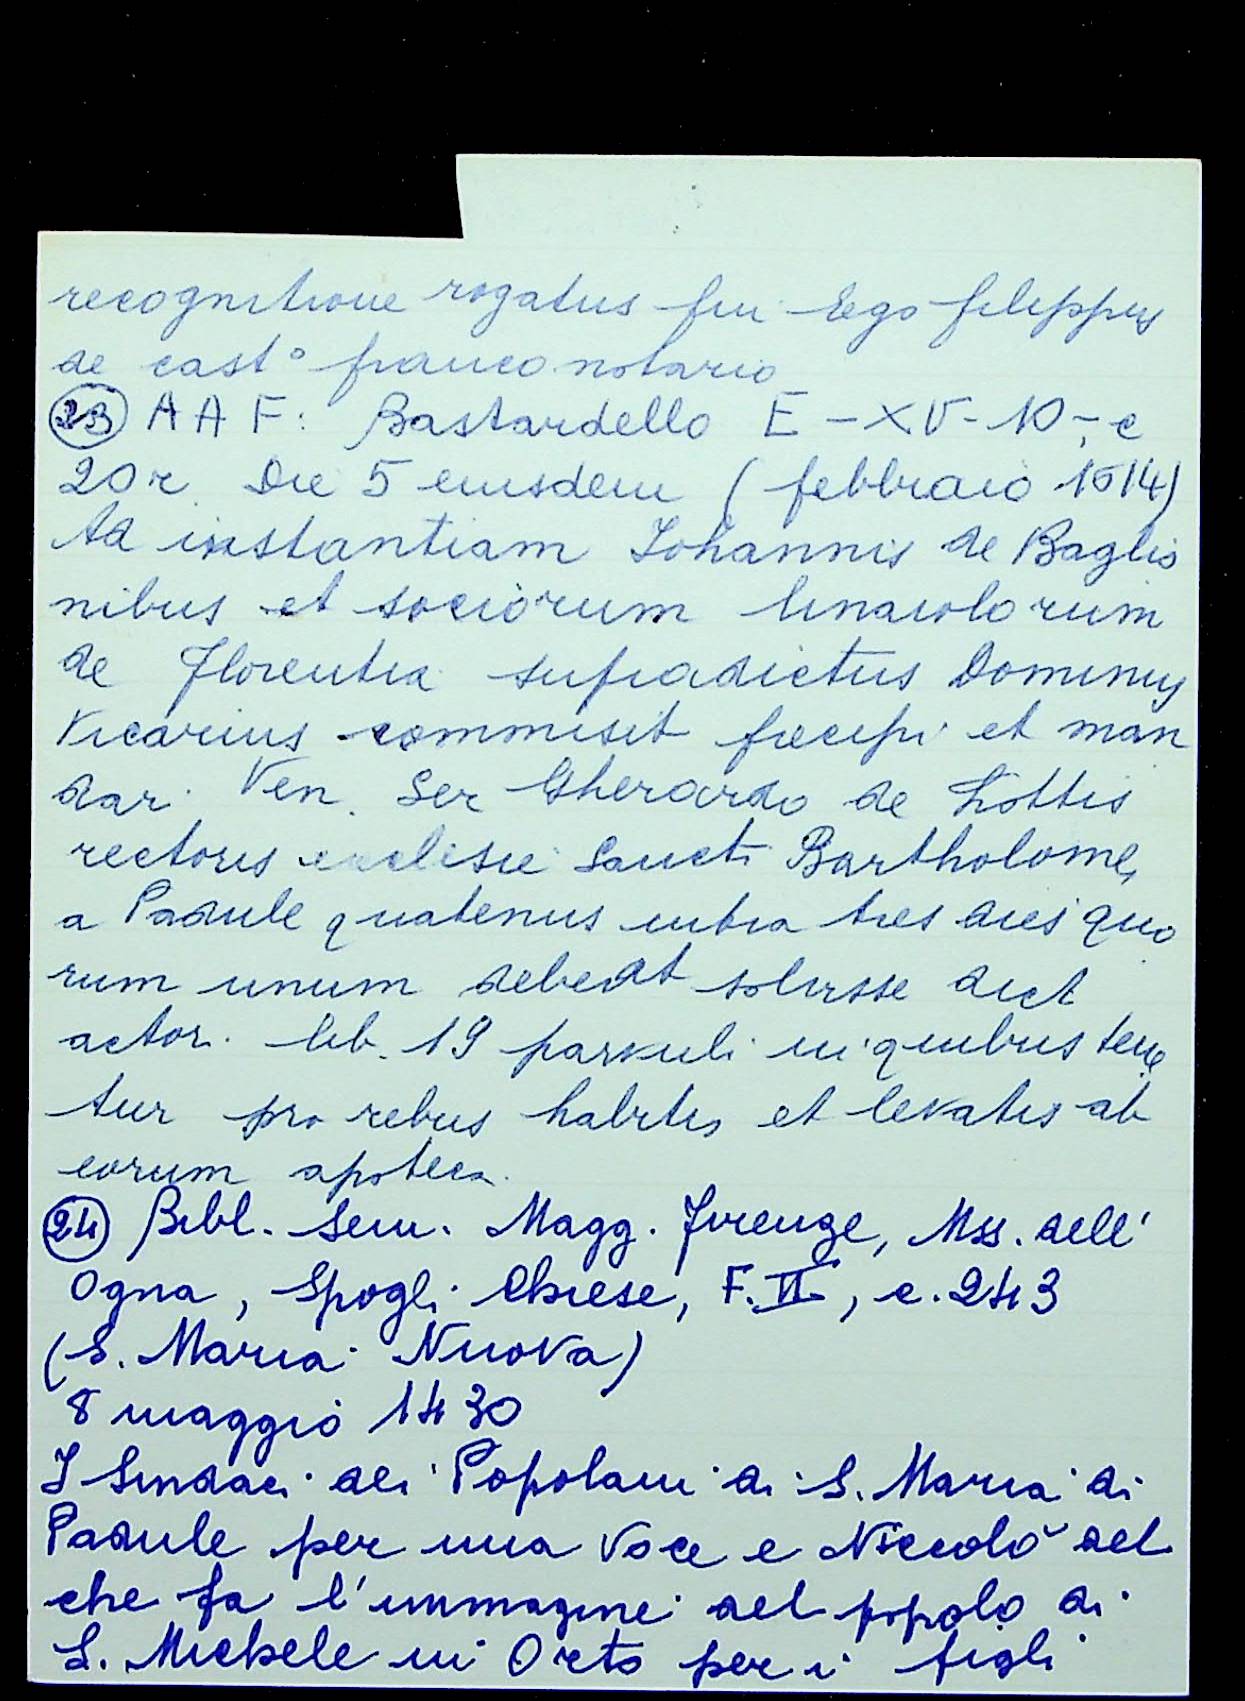 recognitione rogatus fui Ego filippus
de cast° franco notario
23 A A F: Bastardello E - XV - 10 - c
20 r Die 5 eiusdem (febbraio 1514)
Ad instantiam Johannis de Baglio
nibus et sociorum linaiolorum
de Florentia supradictus Dominus
Vicarius commisit precipi et man
dar. Ven. Ser Gherardo de Lottis
rectoris ecclesie Sancti Bartholomei
a Padule quatenus intra tres dies quo
rum unum debeat solvisse dict
actor. lib. 19 parvuli in quibus tene
tur pro rebus habitis et levatis ab
eorum apoteca.
24 Bibl. Sem. Magg. Firenze, Mss. dell'
Ogna, Spogli Chiese, F. VI, c. 243
(S. Maria Nuova)
8 maggio 1430
I Sindaci dei Popolani di S. Maria di
Padule per una voce e Niccolò del
che fa l'immagine del popolo di
S. Michele in Orto per i figli